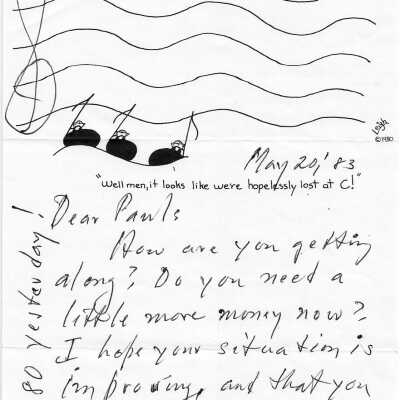 Leigh
©1980
May 20, '83
"Well men, it looks like we're hopelessly lost at C!"
Dear Paul:
How are you getting
along? Do you need a
little more money now?
I hope your situation is
improving, and that you
80 yesterday!